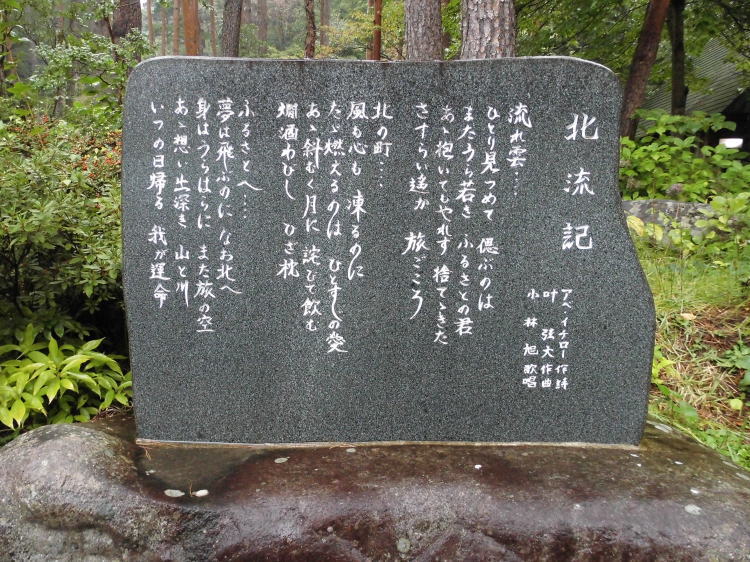 北流記
アベ・イチロー作詩
叶 弦大作曲
小林 旭歌唱
流れ雲‥‥
ひとり見つめて 偲ぶのは
まだうら若き ふるさとの君
あゝ抱いてもやれず 捨てゝきた
さすらい遙か 旅ごころ
北の町‥‥
風も心も 凍るのに
たゞ燃えるのは ひとすじの愛
あゝ斜むく月に 詫びて飲む
燗酒わびし ひざ枕
ふるさとへ‥‥
夢は飛ぶのに なお北へ
身はうらはらに また旅の空
あゝ想い出深き 山と川
いつの日帰る 我が運命